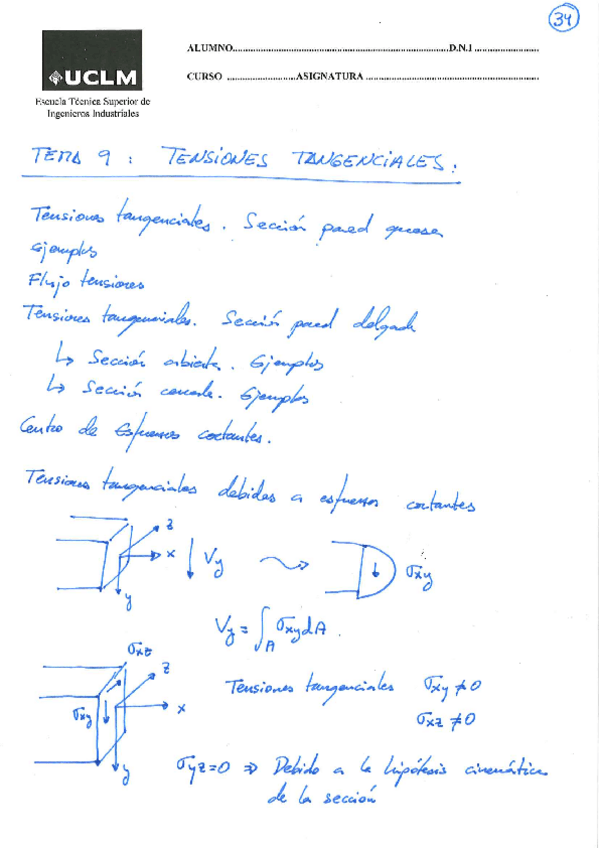 34
ALUMNO............................................D.N.I ....................
CURSO ....................ASIGNATURA ..................................................
UCLM
Escuela Técnica Superior de
Ingenieros Industriales
TEMA 9 : TENSIONES TANGENCIALES.
Tensiones tangenciales. Sección pared gruesa
Ejemplos
Flujo tensiones
Tensiones tangenciales. Sección pared delgada
↳ Sección abierta. Ejemplos
↳ Sección cerrada. Ejemplos
Centro de Esfuerzos cortantes.
Tensiones tangenciales debidas a esfuerzos cortantes
z
x
y
Vy
σxy
Vy = ∫A σxy dA.
σxz
z
x
y
σxy
Tensiones tangenciales σxy ≠ 0
σxz ≠ 0
σyz = 0 ⇒ Debido a la hipótesis cinemática
de la sección